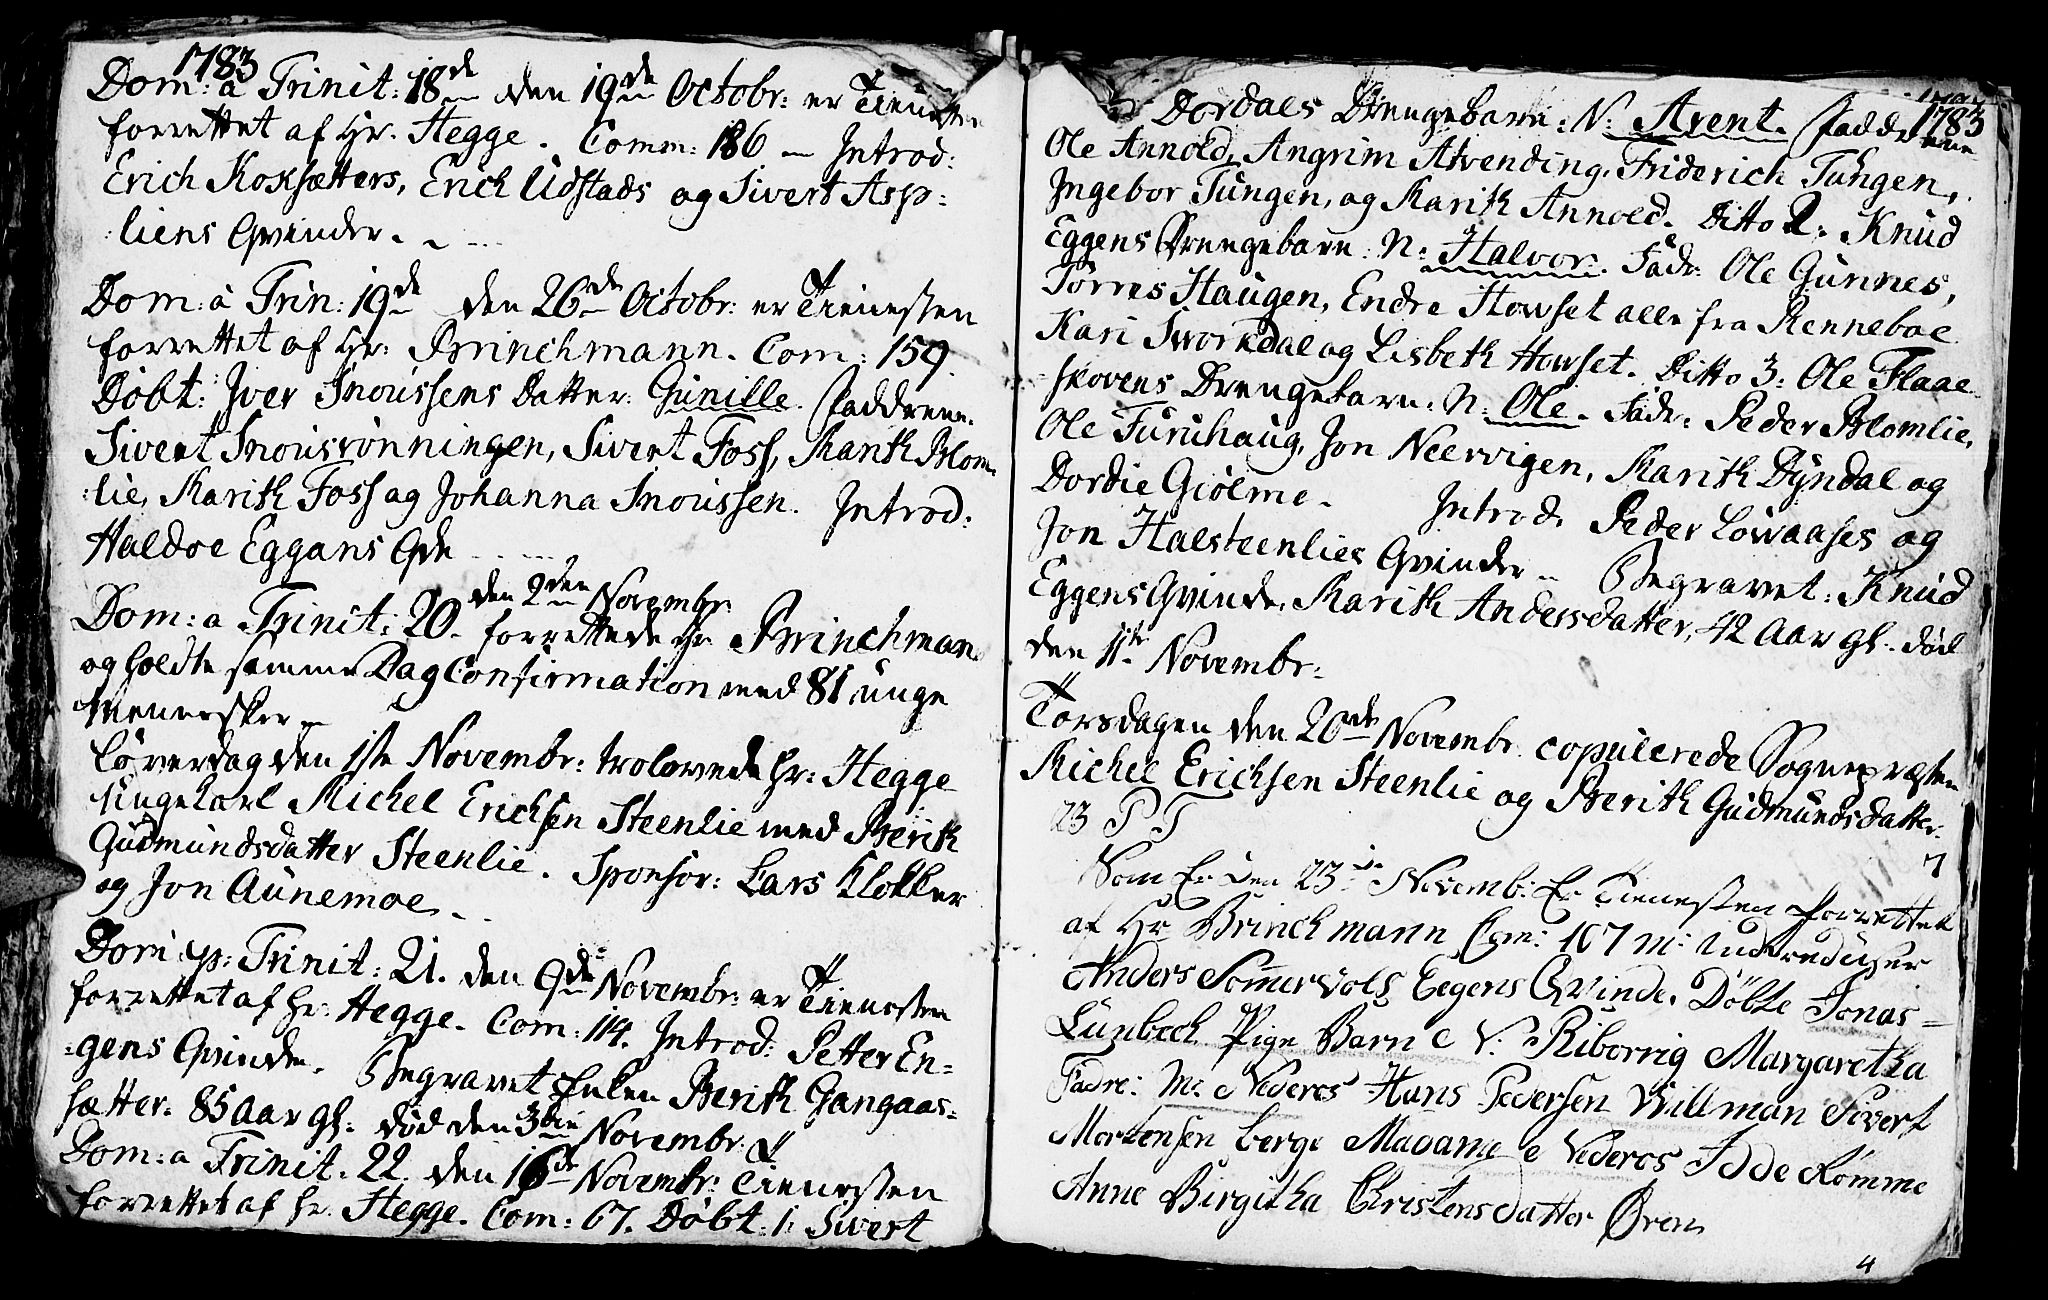 1783
Dom: a Trinit: 18de den 19de Octobr: er Tienesten
forrettet af Hr. Hegge. Comm: 186 — Introd:
Erich Koxsætters, Erich Udstads og Sivert Asp:
:liens Qvinder.
Dom: a Trin: 19de den 26de Octobr: er Tienesten
forrettet af Hr: Brinchmann. Com: 159.
Døbt: Iver Snoussens Datter: Gunille. Faddrene:
Sivert Snousrønningen, Sivert Foss, Marith Blom:
:lie, Marith Foss og Johanna Snoussen. Introd:
Haldoe Eggans Qde
Dom: a Trinit: 20. den 2den Novembr: forrettede Hr. Brinchman
og holdte samme Dag Confirmation med 81 unge
Mennesker.
Løverdag den 1ste Novembr: trolovede Hr: Hegge
Ungekarl Michel Erichsen Steenlie med Berith
Gudmundsdatter Steenlie. Sponsor: Lars Klokker
og Jon Aunemoe.
Dom: p: Trinit: 21. den 9de Novembr: er Tienesten
forrettet af Hr: Hegge. Com: 114. Introd: Petter En=
=gens Qvinde. Begravet Enken Berith Gangaas=
sætter. 85 Aar gl: død den 3die Novembr:
Dom: a Trinit. 22. den 16de Novembr: Tienesten
forrettet af Hr. Hegge. Com: 67. Døbt: 1. Sivert
1783
Dordals Drengebarn: N: Arent. Faddrene
Ole Annold, Angrim Atvending, Friderich Tungen,
Ingebor Tungen, og Marith Annold. Ditto 2: Knud
Eggens Drengebarn: N: Halvor. Fadr: Ole Gunnes,
Tørres Haugen, Endre Howset alle fra Renneboe
Kari Sworkdal og Lisbeth Howset. Ditto 3: Ole Flaae
skovens Drengebarn: N: Ole. Fadr: Peder Blomlie,
Ole Furuhaug, Jon Neervigen, Marith Dyndal og
Dordie Giølme. Introd: Peder Lowaases og
Jon Halsteenlies Qvinder. Begravet: Knud
Eggens Qvinde, Marith Andersdatter, 42 Aar gl. død
den 11te Novembr:
Torsdagen den 20nde Novembr copulerede Sognepræsten
Michel Erichsen Steenlie og Berith Gudmundsdatter.
23 P T
7
den 23de Novemb: Er Tienesten forrettet
af Hr Brinchmann Com: 107 M: Introduser
Anders Somervols Eegens Qvinde. Døbte Jonas=
Lunbech Pige Barn N: Riborrig Margaretha
Fadre: M: Nederos Hans Pedersen Willman Sivert
Mortensen berge Madame Nederos Idde Romme
Anne Birgitha Christensdatter Ören
4